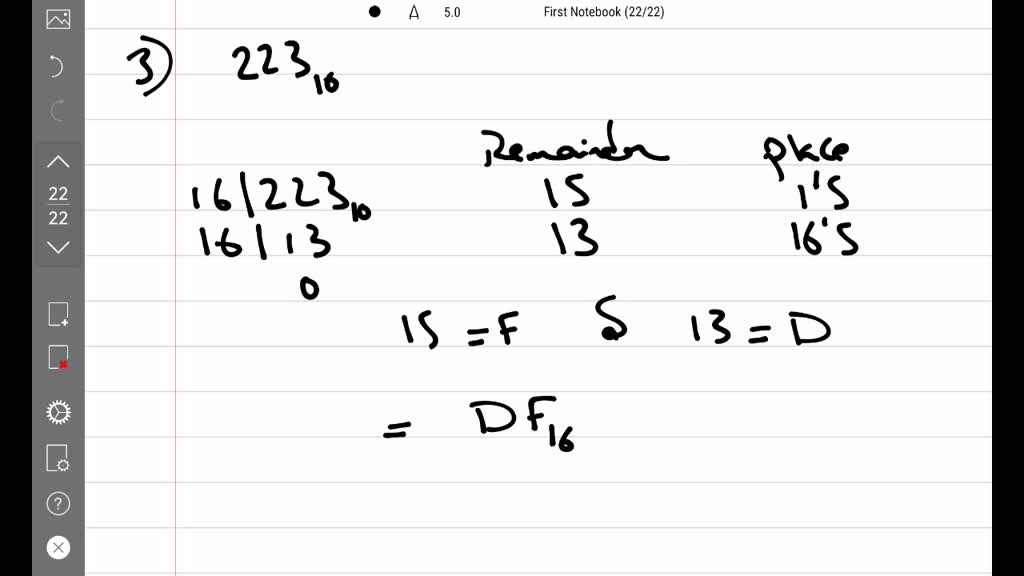 A 5.0 First Notebook (22/22)
3) 223₁₀
Remainder place
16/223₁₀ 15 1's
16/13 13 16's
0
15 = F & 13 = D
= DF₁₆
22
22
?